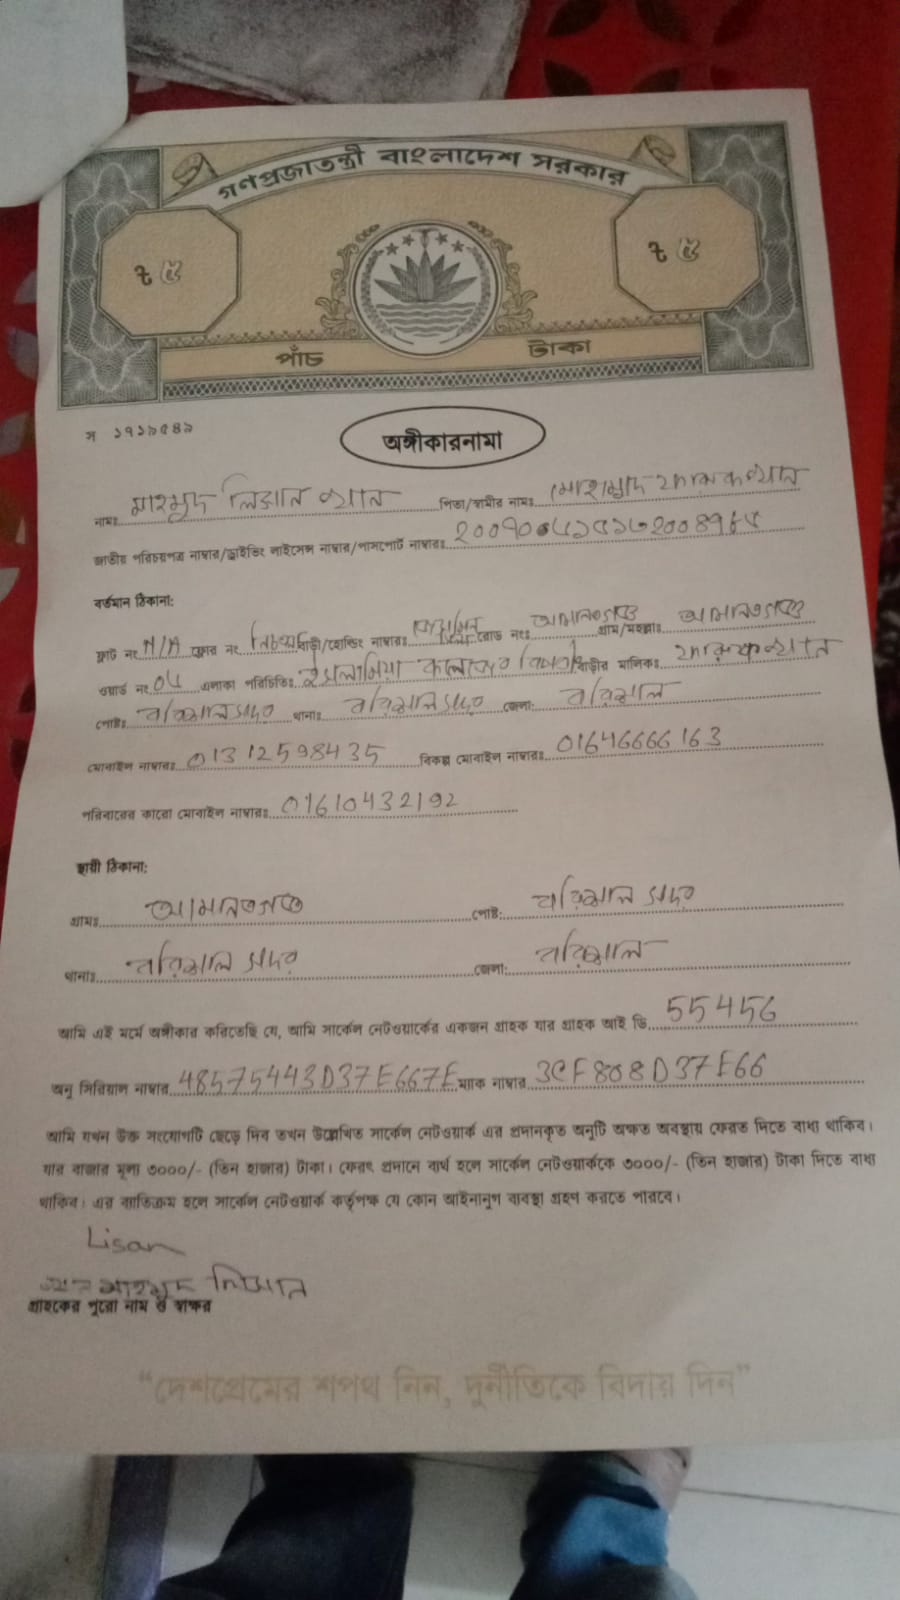 গণপ্রজাতন্ত্রী বাংলাদেশ সরকার
৳ ৫ ৳ ৫
পাঁচ টাকা
স ১৭১৯৫৪৯
অঙ্গীকারনামা
নামঃ মাহমুদ লিসান খান পিতা/স্বামীর নামঃ মোহাম্মদ ফারুক খান
জাতীয় পরিচয়পত্র নাম্বার/ড্রাইভিং লাইসেন্স নাম্বার/পাসপোর্ট নাম্বারঃ
বর্তমান ঠিকানা:
ফ্লাট নং N/A ফ্লোর নং নিচতলা বাড়ী/হোল্ডিং নাম্বারঃ রোড নংঃ আমানতগঞ্জ গ্রাম/মহল্লাঃ আমানতগঞ্জ
ওয়ার্ড নং 05 এলাকা পরিচিতিঃ ইসলামিয়া কলেজের বিপরীত বাড়ীর মালিকঃ ফারুক খান
পোষ্টঃ বরিশাল সদর থানাঃ বরিশাল সদর জেলা: বরিশাল
মোবাইল নাম্বারঃ 01312598435 বিকল্প মোবাইল নাম্বারঃ 01646666163
পরিবারের কারো মোবাইল নাম্বারঃ 01610432192
স্থায়ী ঠিকানা:
গ্রামঃ আমানতগঞ্জ পোষ্ট: বরিশাল সদর
থানাঃ বরিশাল সদর জেলা: বরিশাল
আমি এই মর্মে অঙ্গীকার করিতেছি যে, আমি সার্কেল নেটওয়ার্কের একজন গ্রাহক যার গ্রাহক আই ডি 55456
অনু সিরিয়াল নাম্বার 48575443D37E667E ম্যাক নাম্বার 3CF808D37E66
আমি যখন উক্ত সংযোগটি ছেড়ে দিব তখন উল্লেখিত সার্কেল নেটওয়ার্ক এর প্রদানকৃত অনুটি অক্ষত অবস্থায় ফেরত দিতে বাধ্য থাকিব।
যার বাজার মূল্য ৩০০০/- (তিন হাজার) টাকা। ফেরৎ প্রদানে ব্যর্থ হলে সার্কেল নেটওয়ার্ককে ৩০০০/- (তিন হাজার) টাকা দিতে বাধ্য
থাকিব। এর ব্যতিক্রম হলে সার্কেল নেটওয়ার্ক কর্তৃপক্ষ যে কোন আইনানুগ ব্যবস্থা গ্রহণ করতে পারবে।
Lisan
মাহমুদ লিসান
গ্রাহকের পুরো নাম ও স্বাক্ষর
“দেশপ্রেমের শপথ নিন, দুর্নীতিকে বিদায় দিন”